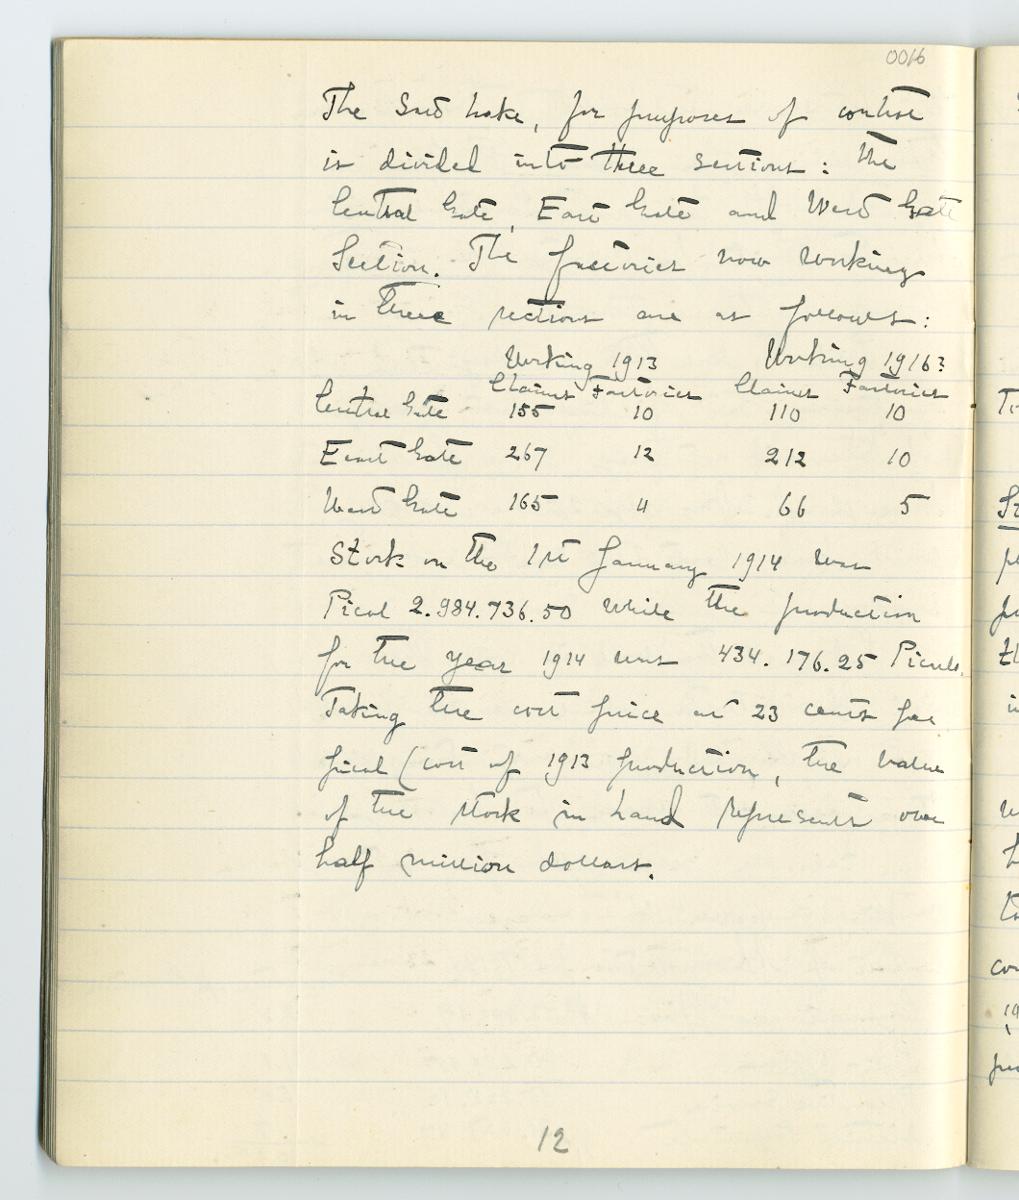 0016
The Salt Lake, for purposes of control
is divided into three sections: the
Central Gate, East Gate and West Gate
Section. The factories now working
in these sections are as follows:
Working 1913 Working 1916?
Claims Factories Claims Factories
Central Gate 155 10 110 10
East Gate 267 12 212 10
West Gate 165 4 66 5
Stock on the 1st January 1914 was
Picul 2.984.736.50 while the production
for the year 1914 was 434.176.25 Piculs.
Taking the cost price at 23 cents per
picul (cost of 1913 production, the value
of the stock in hand represents over
half million dollars.
12